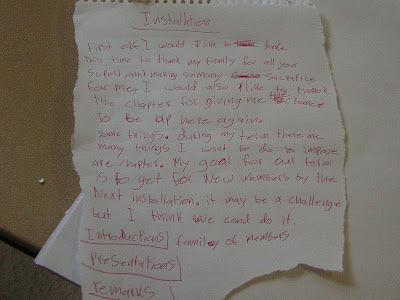 Installation
First off I would like to take
this time to thank my family for all your
suport and making so many sacrafice
for me, I would also like to thank
the chapter for giving me chance
to be up here again.
some things. during my term there are
many things I want to do to improve
are chapter. My goal for our term
is to get for New members by the
Next installation. it may be a challenge
but I think we cand do it.
Introductions family of members
Presentations
remarks